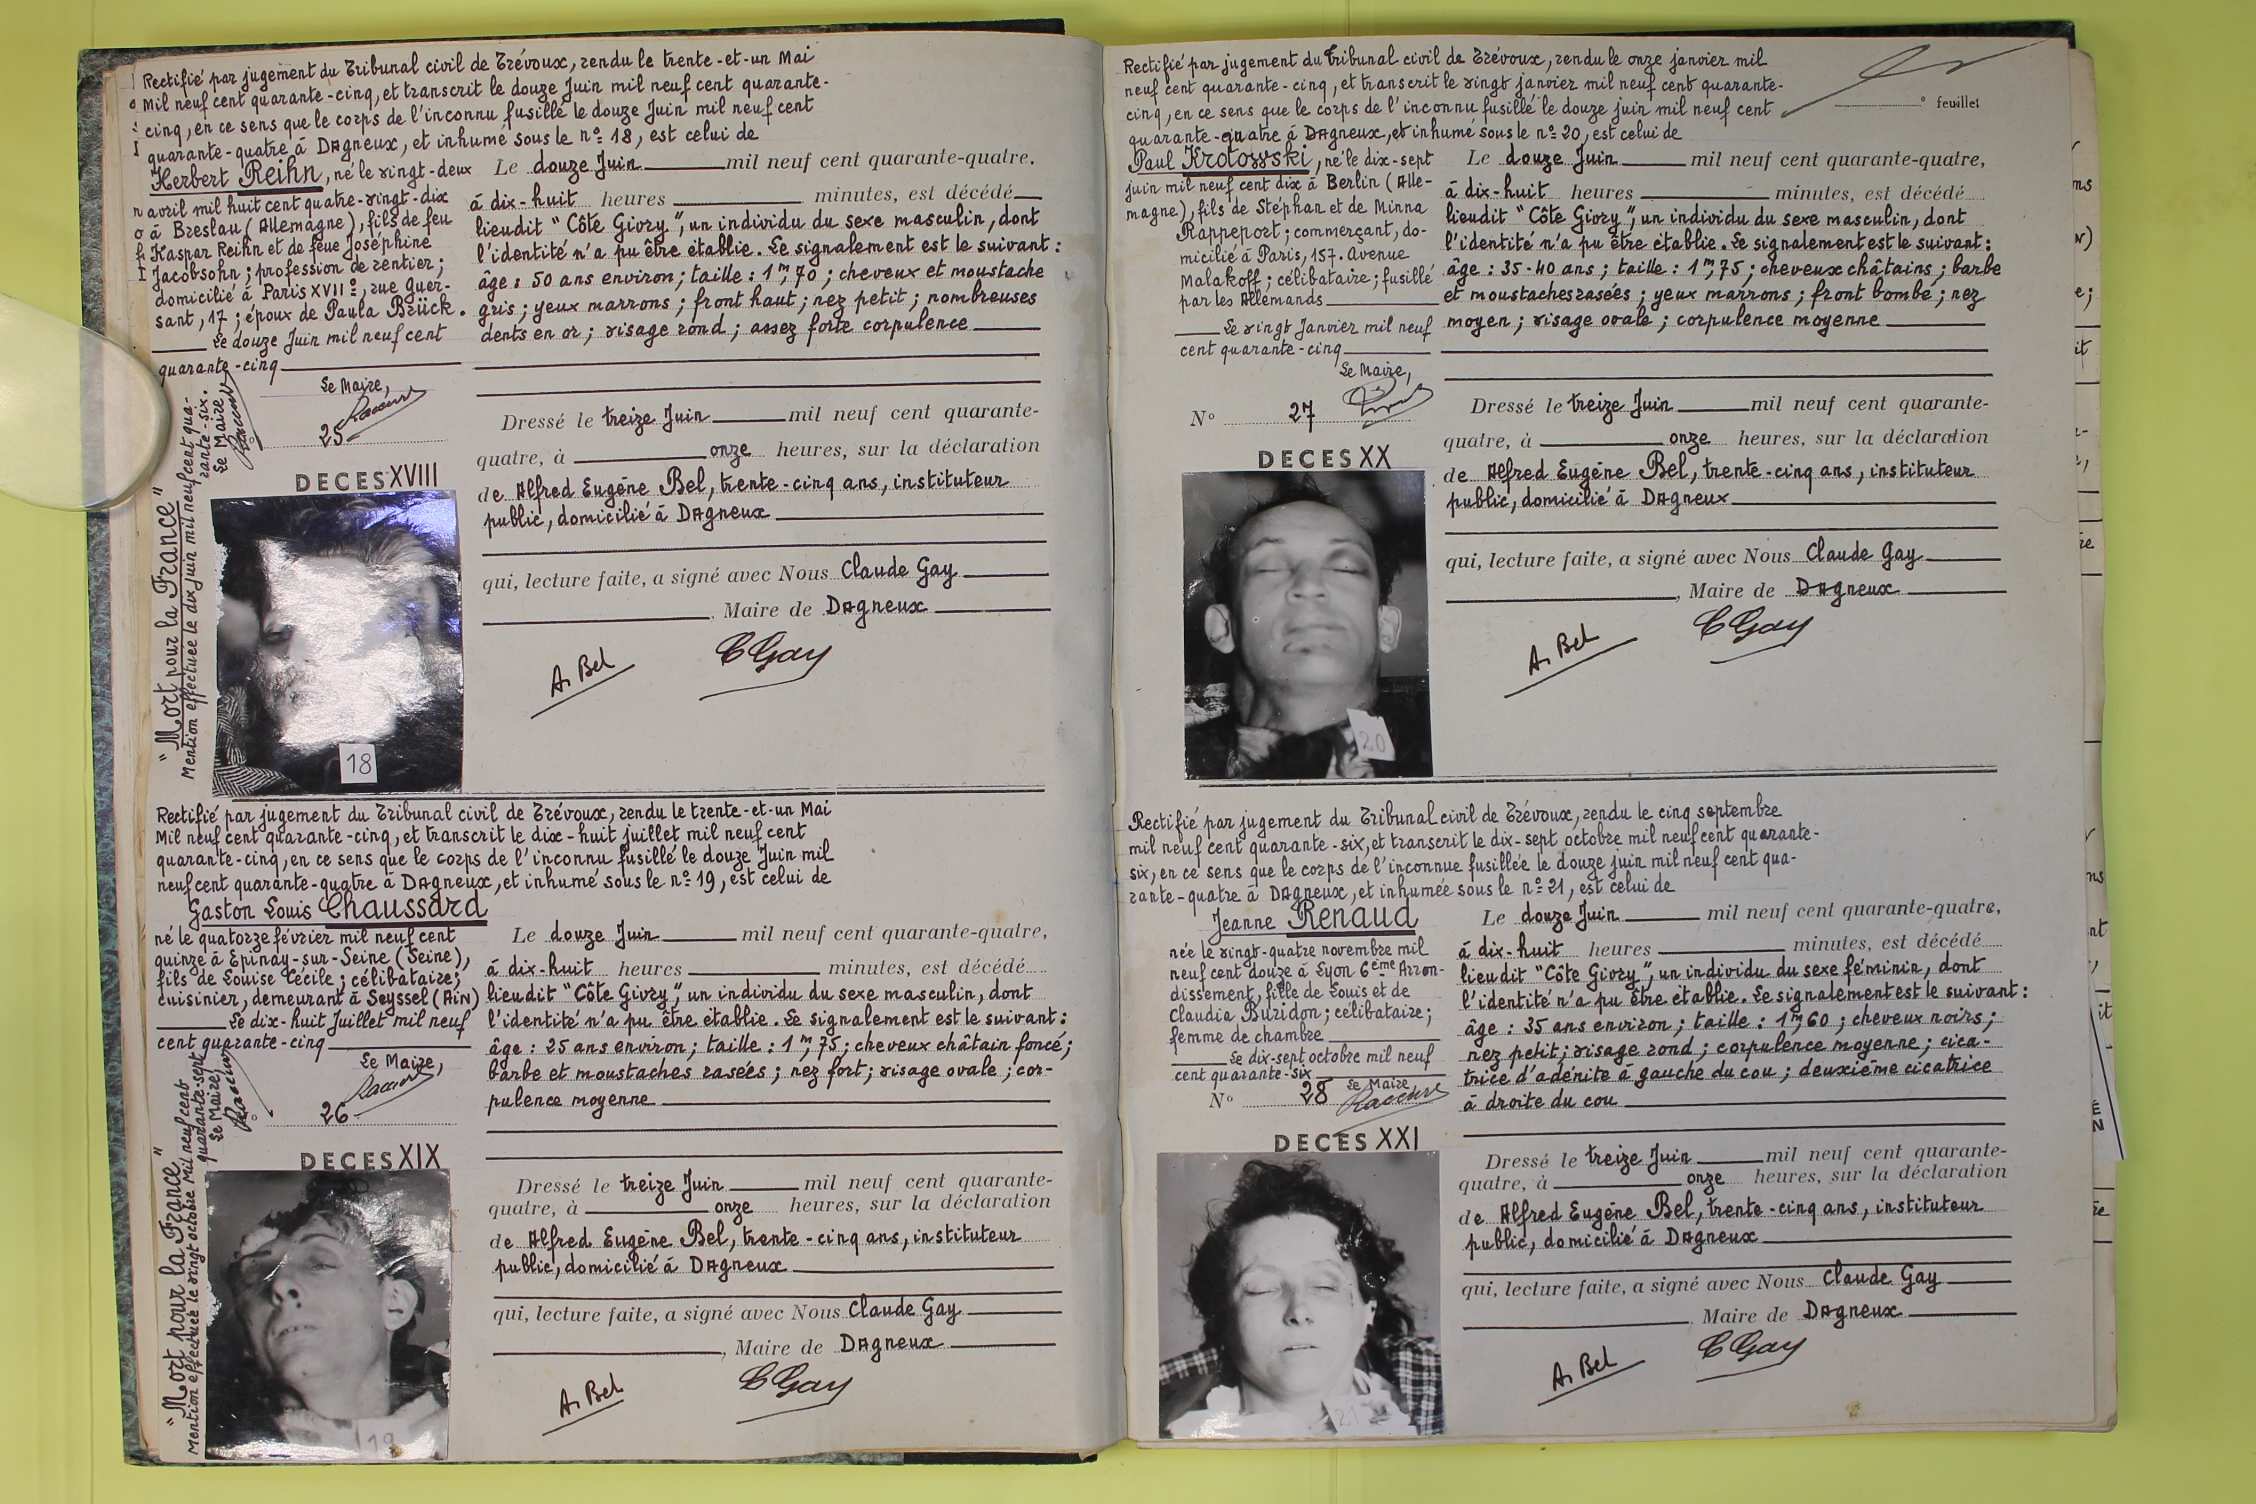 Rectifié par jugement du Tribunal civil de Trévoux, rendu le trente-et-un Mai
Mil neuf cent quarante-cinq, et transcrit le douze Juin mil neuf cent quarante-
cinq, en ce sens que le corps de l'inconnu fusillé le douze Juin mil neuf cent
quarante-quatre à Dagneux, et inhumé sous le n° 18, est celui de
Herbert Reihn, né le vingt-deux
avril mil huit cent quatre-vingt-dix
à Breslau (Allemagne), fils de feu
Kaspar Reihn et de feue Joséphine
Jacobsohn; profession de rentier;
domicilié à Paris XVII°, rue Guer-
sant, 17; époux de Paula Brück.
Le douze Juin mil neuf cent
quarante-cinq
Le Maire,
25
"Mort pour la France"
Mention effectuée le dix juin mil neuf cent qua-
rante-six.
Le Maire,
DECES XVIII
18
Le douze Juin mil neuf cent quarante-quatre,
à dix-huit heures minutes, est décédé
lieudit "Côte Givry", un individu du sexe masculin, dont
l'identité n'a pu être établie. Le signalement est le suivant:
âge: 50 ans environ; taille: 1m,70; cheveux et moustache
gris; yeux marrons; front haut; nez petit; nombreuses
dents en or; visage rond; assez forte corpulence
Dressé le treize Juin mil neuf cent quarante-
quatre, à onze heures, sur la déclaration
de Alfred Eugène Bel, trente-cinq ans, instituteur
public, domicilié à Dagneux
qui, lecture faite, a signé avec Nous Claude Gay
, Maire de Dagneux
A. Bel
C Gay
Rectifié par jugement du Tribunal civil de Trévoux, rendu le trente-et-un Mai
Mil neuf cent quarante-cinq, et transcrit le dix-huit juillet mil neuf cent
quarante-cinq, en ce sens que le corps de l'inconnu fusillé le douze Juin mil
neuf cent quarante-quatre à Dagneux, et inhumé sous le n° 19, est celui de
Gaston Louis Chaussard
né le quatorze février mil neuf cent
quinze à Epinay-sur-Seine (Seine),
fils de Louise Cécile; célibataire;
cuisinier, demeurant à Seyssel (Ain)
Le dix-huit Juillet mil neuf
cent quarante-cinq
Le Maire,
26
"Mort pour la France"
Mention effectuée le vingt octobre mil neuf cent
quarante-sept
Le Maire,
DECES XIX
19
Le douze Juin mil neuf cent quarante-quatre,
à dix-huit heures minutes, est décédé
lieudit "Côte Givry", un individu du sexe masculin, dont
l'identité n'a pu être établie. Le signalement est le suivant:
âge: 25 ans environ; taille: 1m,75; cheveux châtain foncé;
barbe et moustaches rasées; nez fort; visage ovale; cor-
pulence moyenne
Dressé le treize Juin mil neuf cent quarante-
quatre, à onze heures, sur la déclaration
de Alfred Eugène Bel, trente-cinq ans, instituteur
public, domicilié à Dagneux
qui, lecture faite, a signé avec Nous Claude Gay
, Maire de Dagneux
A. Bel
C Gay
° feuillet
Rectifié par jugement du Tribunal civil de Trévoux, rendu le onze janvier mil
neuf cent quarante-cinq, et transcrit le vingt janvier mil neuf cent quarante-
cinq, en ce sens que le corps de l'inconnu fusillé le douze juin mil neuf cent
quarante-quatre à Dagneux, et inhumé sous le n° 20, est celui de
Paul Krotowski, né le dix-sept
juin mil neuf cent dix à Berlin (Alle-
magne), fils de Stéphan et de Minna
Rappeport; commerçant, do-
micilié à Paris, 157. Avenue
Malakoff; célibataire; fusillé
par les Allemands
Le vingt Janvier mil neuf
cent quarante-cinq
Le Maire,
N° 27
DECES XX
20
Le douze Juin mil neuf cent quarante-quatre,
à dix-huit heures minutes, est décédé
lieudit "Côte Givry", un individu du sexe masculin, dont
l'identité n'a pu être établie. Le signalement est le suivant:
âge: 35-40 ans; taille: 1m,75; cheveux châtains; barbe
et moustaches rasées; yeux marrons; front bombé; nez
moyen; visage ovale; corpulence moyenne
Dressé le treize Juin mil neuf cent quarante-
quatre, à onze heures, sur la déclaration
de Alfred Eugène Bel, trente-cinq ans, instituteur
public, domicilié à Dagneux
qui, lecture faite, a signé avec Nous Claude Gay
, Maire de Dagneux
A. Bel
C Gay
Rectifié par jugement du Tribunal civil de Trévoux, rendu le cinq septembre
mil neuf cent quarante-six, et transcrit le dix-sept octobre mil neuf cent quarante-
six, en ce sens que le corps de l'inconnue fusillée le douze juin mil neuf cent qua-
rante-quatre à Dagneux, et inhumée sous le n° 21, est celui de
Jeanne Renaud
née le vingt-quatre novembre mil
neuf cent douze à Lyon 6ème Arron-
dissement, fille de Louis et de
Claudia Buridon; célibataire;
femme de chambre
Le dix-sept octobre mil neuf
cent quarante-six
Le Maire
N° 28
DECES XXI
21
Le douze Juin mil neuf cent quarante-quatre,
à dix-huit heures minutes, est décédé
lieudit "Côte Givry", un individu du sexe féminin, dont
l'identité n'a pu être établie. Le signalement est le suivant:
âge: 35 ans environ; taille: 1m,60; cheveux noirs;
nez petit; visage rond; corpulence moyenne; cica-
trice d'adénite à gauche du cou; deuxième cicatrice
à droite du cou
Dressé le treize Juin mil neuf cent quarante-
quatre, à onze heures, sur la déclaration
de Alfred Eugène Bel, trente-cinq ans, instituteur
public, domicilié à Dagneux
qui, lecture faite, a signé avec Nous Claude Gay
, Maire de Dagneux
A. Bel
C Gay